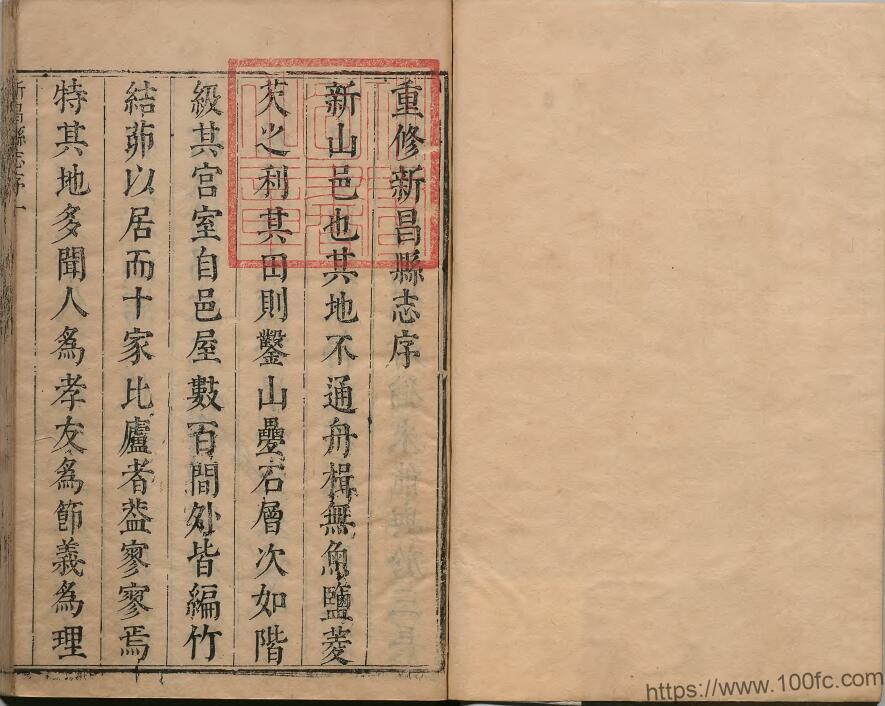 重修新昌縣志序
新山邑也其地不通舟楫無魚鹽菱
芡之利其田則鑿山疊石層次如階
級其宮室自邑屋數百間外皆編竹
結茆以居而十家比廬者葢寥寥焉
特其地多聞人為孝友為節義為理
新昌縣志序一
https://www.100fc.com